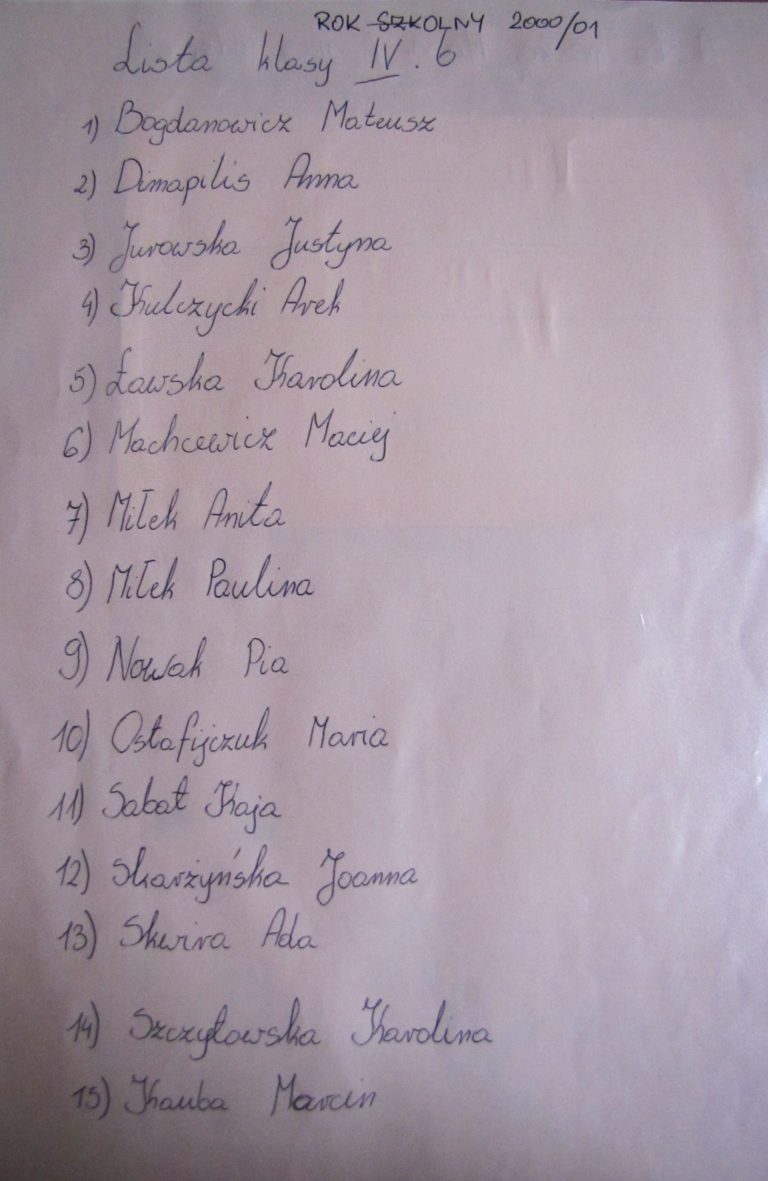 ROK SZKOLNY 2000/01
Lista klasy IV. b
1) Bogdanowicz Mateusz
2) Dimapilis Anna
3) Jurowska Justyna
4) Kulczycki Arek
5) Ławska Karolina
6) Machcewicz Maciej
7) Miłek Anita
8) Miłek Paulina
9) Nowak Pia
10) Ostafijczuk Maria
11) Sabat Kaja
12) Skarżyńska Joanna
13) Skwira Ada
14) Szczyłowska Karolina
15) Kauba Marcin